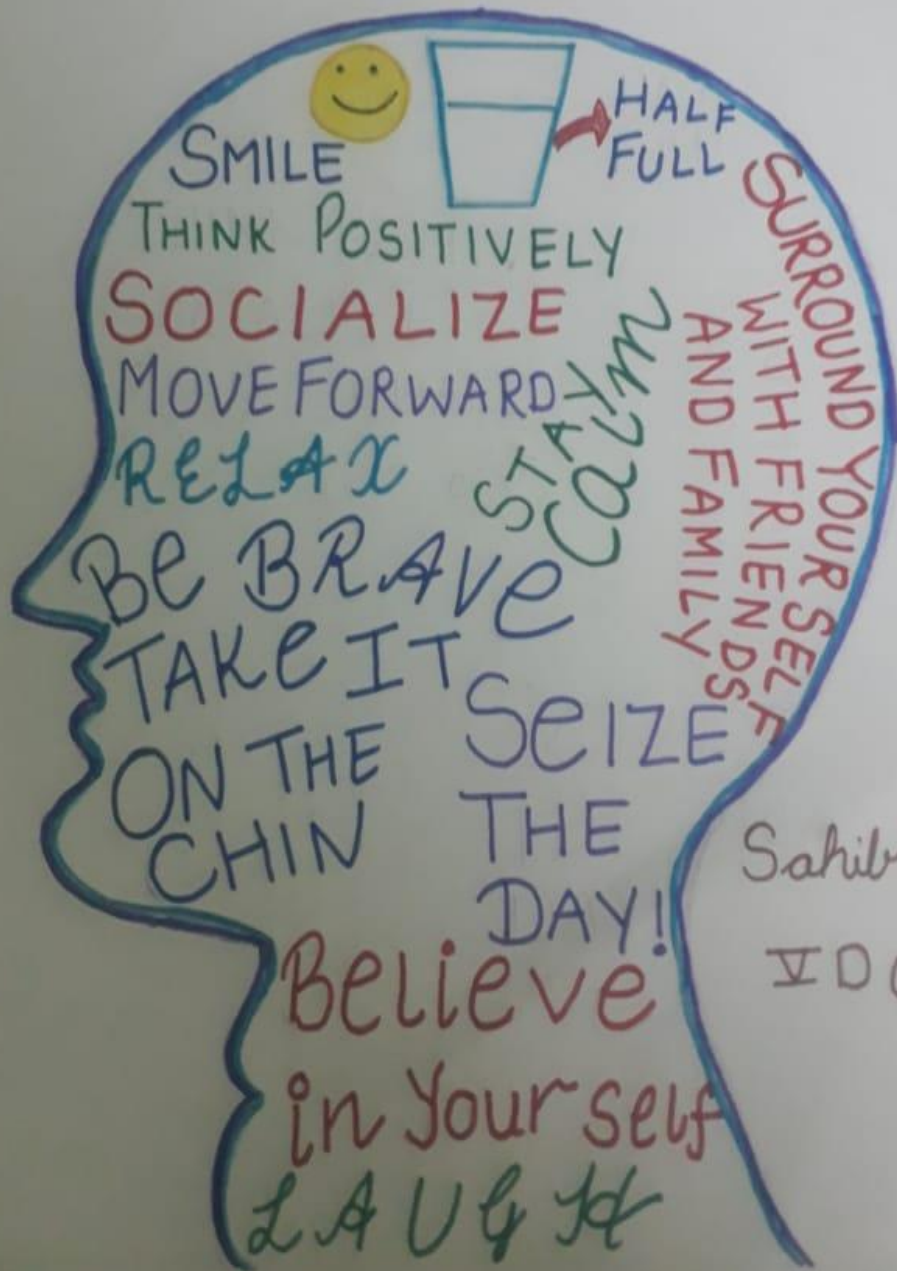 SMILE
HALF
FULL
THINK POSITIVELY
SOCIALIZE
MOVE FORWARD
RELAX
STAY
CALM
SURROUND YOURSELF
WITH FRIENDS
AND FAMILY
Be BRAVe
TAKe IT
ON THE
CHIN
SeIZE
THE
DAY!
Believe
in Yourself
LAUGH
V D